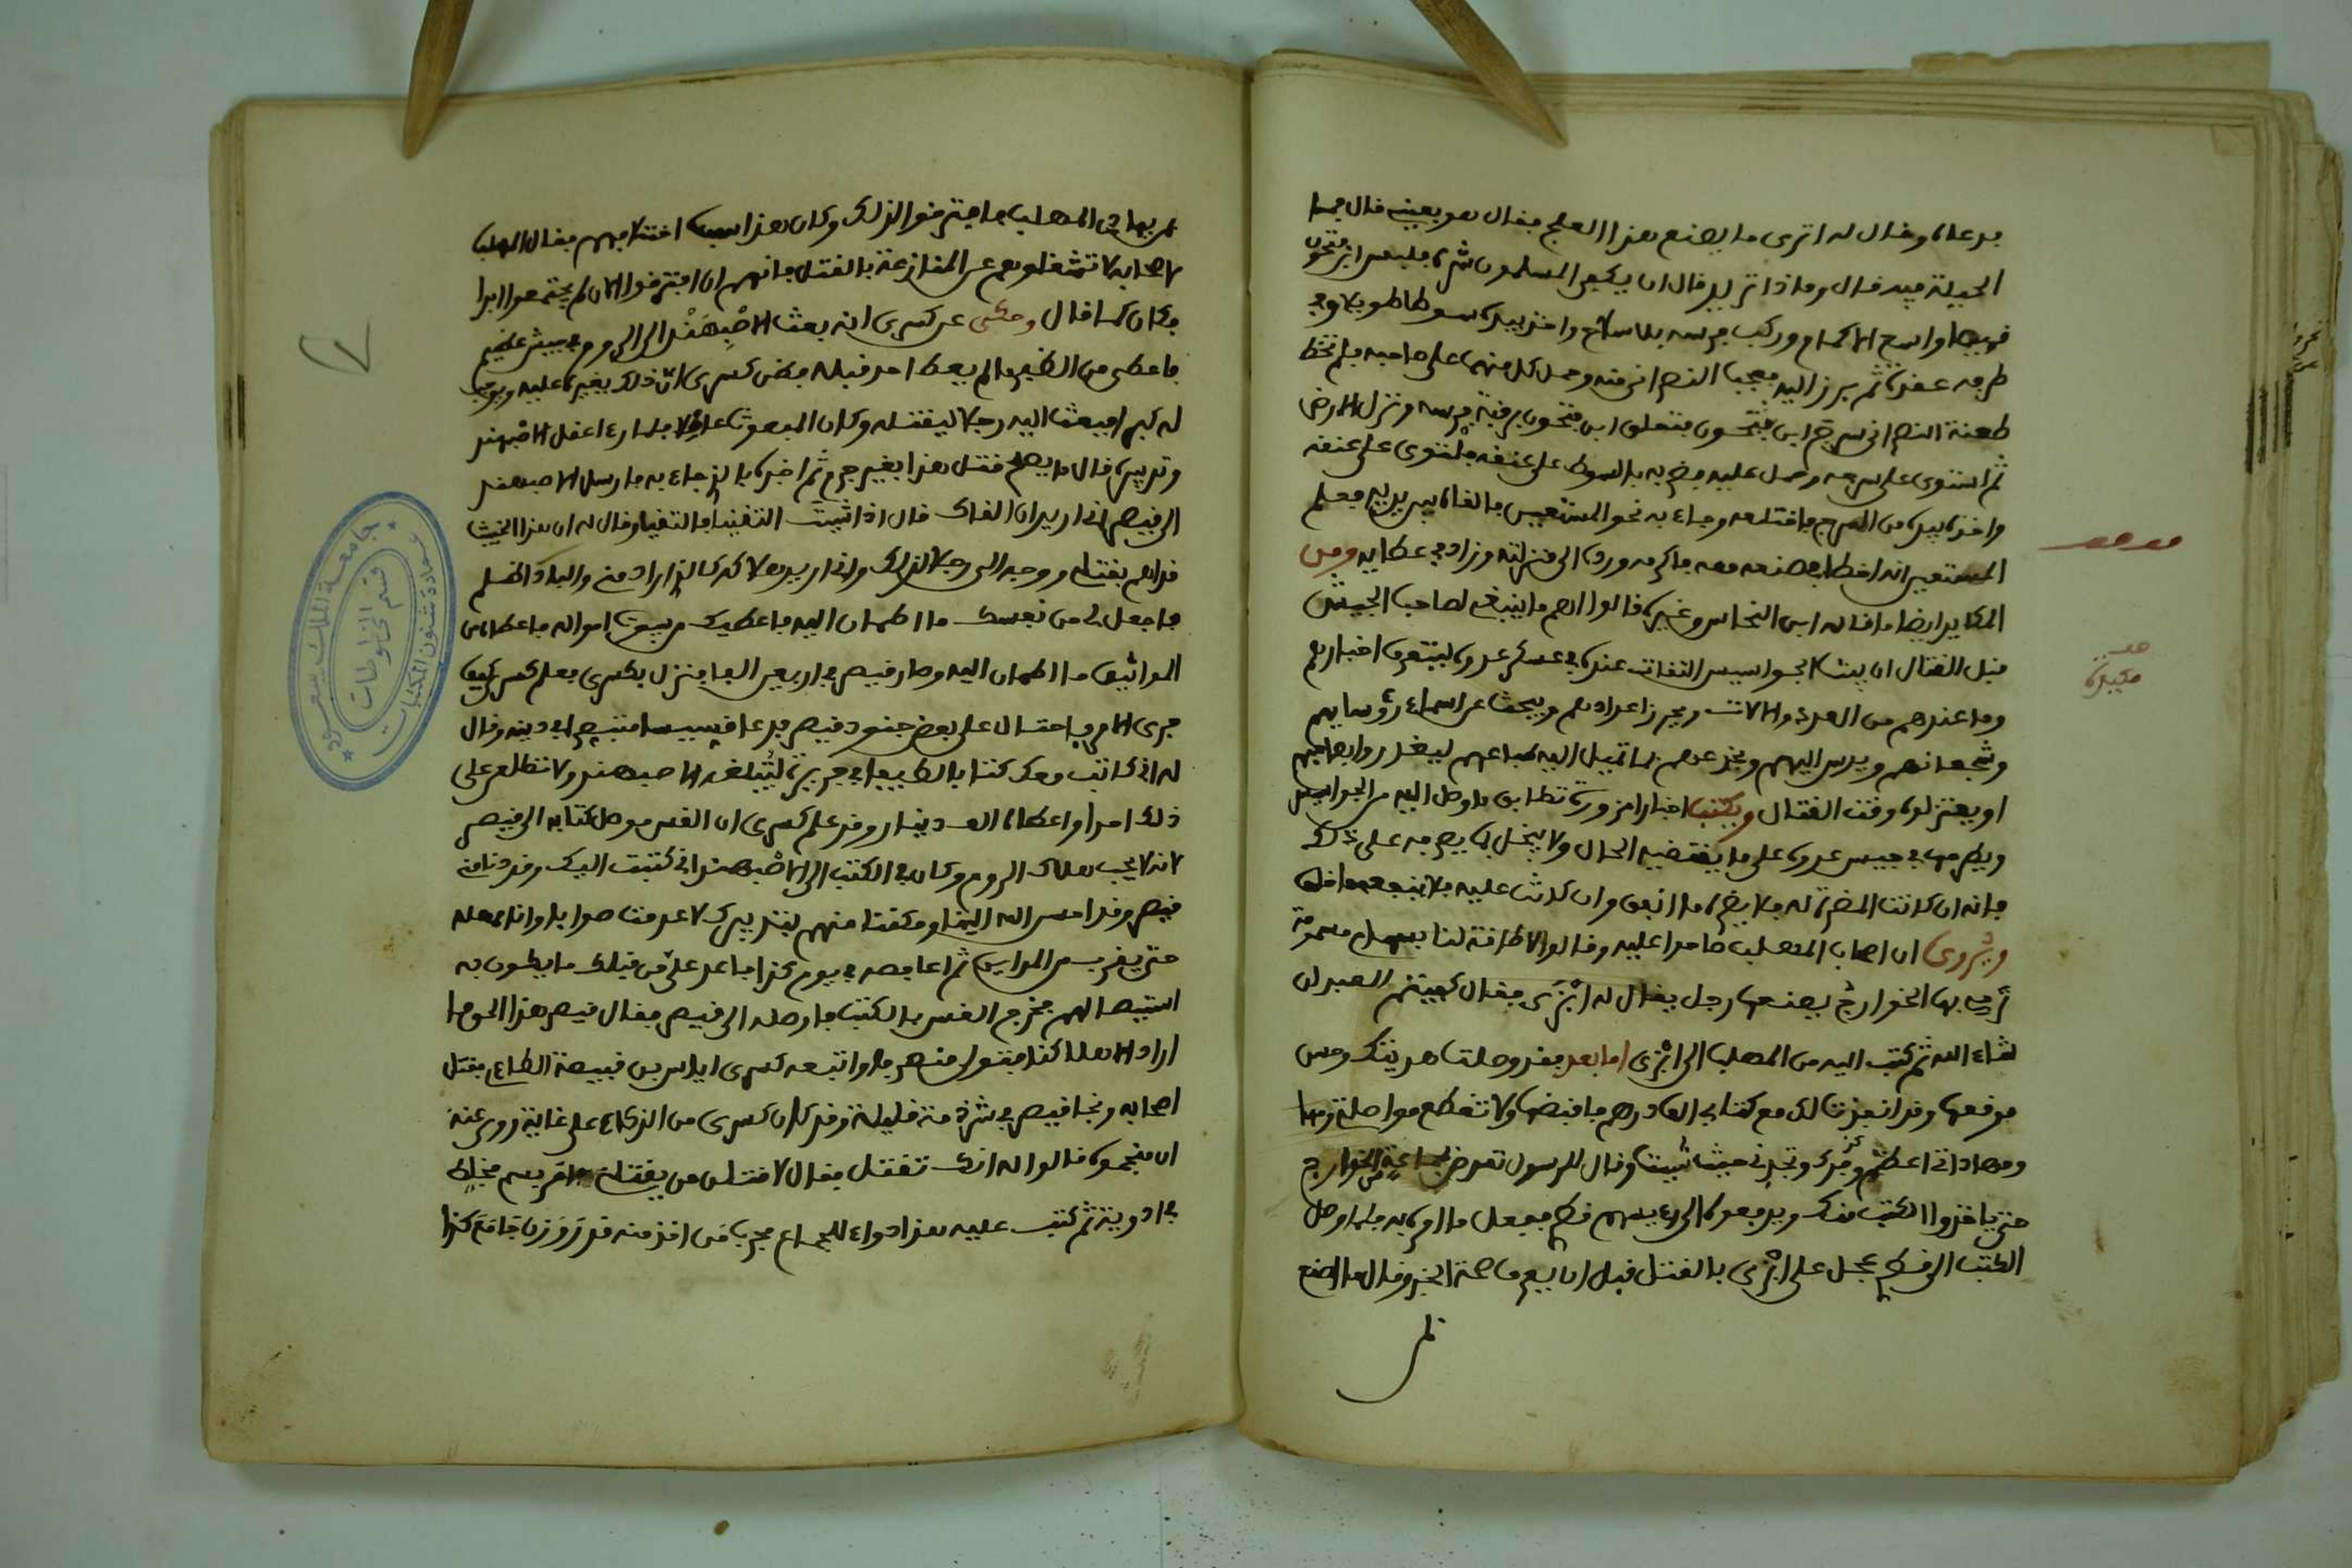 فدعاه وقال له اترى ما يصنع هذا العلج فقال هو بعينه قال فما
الحيلة فيه قال وماذا تريد قال ان يكفى المسلمون شره فلبس ابن فتحون
قميصا واسع الاكمام وركب فرسه بلا سلاح واخذ بيده سوطا طويلا وفي
طرفه عقدة ثم برز اليه فعجب النصراني منه وحمل كل منهما على صاحبه فلم تخط
طعنة النصراني سرج ابن فتحون فتعلق ابن فتحون برقبة فرسه ونزل الارض
ثم استوى على سرجه وحمل عليه وضربه بالسوط على عنقه فالتوى على عنقه
واخذه بيده من السرج فاقتلعه وجاء به نحو المستعين فالقاه بين يديه فعلم
المستعين انه اخطا في صنعه معه فاكرمه ورده الى منزلته وزاد في عطايه ومن
المكايد ايضا ما قاله ابن النحاس وغيره قالوا اهم ما ينبغي لصاحب الجيش
قبل القتال ان يبث الجواسيس الثقات عنده في عسكر عدوه ليتعرف اخبارهم
وما عندهم من العدد والالات ويحرز اعدادهم ويبحث عن اسماء رؤسايهم
وشجعانهم ويدس اليهم ويخدعهم بما تميل اليه طباعهم ليغدروا بصاحبهم
او يعتزلوه وقت القتال ويكتب اخبارا مزورة تطابق ما وصل اليه من الجواسيس
ويطرحها في جيش عدوه على ما يقتضيه الحال ولا يبخل بما يصرفه على ذلك
فانه ان كانت النصرة له فلا يضره ما انفق وان كانت عليه فلا ينفعه ما خلف
ويروى ان اصحاب المهلب وقالوا لا طاقة لنا بسهام مسمومة
ترمى بها الخوارج يصنعها رجل يقال له ابزى فقال كفيتم العبد ان
شاء الله ثم كتب اليه من المهلب الى ابزى اما بعد فقد وصلت هديتك وحسن
موقعها وقد انفذت لك مع كتابي الف درهم فاقبضها ولا تقطع مواصلتي بها
ومهاداتي اعظم وتجدني حيث شيت وقال للرسول تعرض لجماعة من الخوارج
حتى ياخذوا الكتب منك ويدفعوها الى رءيسهم قطري ففعل ما امره به فلما وصل
الكتب الى قطري عجل على ابزى بالقتل قبل ان يعرف صحة الخبر وقال ما اصنع
مكيدة
نضربها في المهلب فافترقوا لذلك وكان هذا سبب اختلافهم فقال المهلب
لاصحابه لا تشغلوهم عن المنازعة بالقتل فانهم ان افترقوا الان لم يجتمعوا ابدا
فكان كما قال وحكي عن كسرى انه بعث الاصبهند الى الروم في جيش عظيم
فاعطى من الظفر ما لم يعط احد قبله فظن كسرى ان ذلك يغيره عليه ويوجب
له كبرا فبعث اليه رجلا ليقتله وكان المبعوث عاقلا فلما رءا عقل الاصبهند
وتدبيره قال ما يصلح قتل هذا بغير جرم ثم اخبره بالذي جاء به فارسل الاصبهند
الى قيصر اني اريد ان القاك قال اذا شيت التقينا فالتقيا وقال له ان هذا الخبيث
قد اهم بقتلي ووجه الي رجلا لذلك واني اريد هلاكه كالذي اراد مني والبادئ اظلم
فاجعل لي من نفسك ما اطمان اليه فاعطيك من بيوت امواله فاعطاه من
المواثيق ما اطمان اليه وصار قيصر في اربعين الفا فنزل بكسرى فعلم كسرى كيف
جرى الامر فاحتال على بعض جنود قيصر فدعا قسيسا متنصرا في دينه وقال
له اني كاتب معك كتابا لطيفا في حريرة لتبلغه الاصبهند ولا تطلع على
ذلك احدا واعطاه الف دينار وقد علم كسرى ان القس يوصل كتابه الى قيصر
لانه لا يحب هلاك الروم وكان في الكتب الى الاصبهند اني كتبت اليك وقد دنا مني
قيصر وقد احسن الله الينا ومكننا منهم بتدبيرك لا عدمت صوابا وانا مهله
حتى يقرب من المداين ثم اغافصه في يوم كذا فاغر على من قبلك ما يكون به
استيصالهم فخرج القس بالكتب فاوصله الى قيصر فقال قيصر هذا الحق ما
اراد الا هلاكنا فتولى منهزما واتبعه كسرى اياس بن قبيصة الطاءي فقتل
اصحابه ونجا قيصر في شرذمة قليلة وقد كان كسرى من الذكاء على غاية روي عنه
ان منجميه قالوا له انك تقتل فقال لاقتلن من يقتلني فامر بسم فخلط
في ادوية ثم كتب عليه هذا دواء للجماع مجرب من اخذ منه قدر وزن جامع كذا
جامعة الملك سعود
عمادة شئون المكتبات
قسم المخطوطات